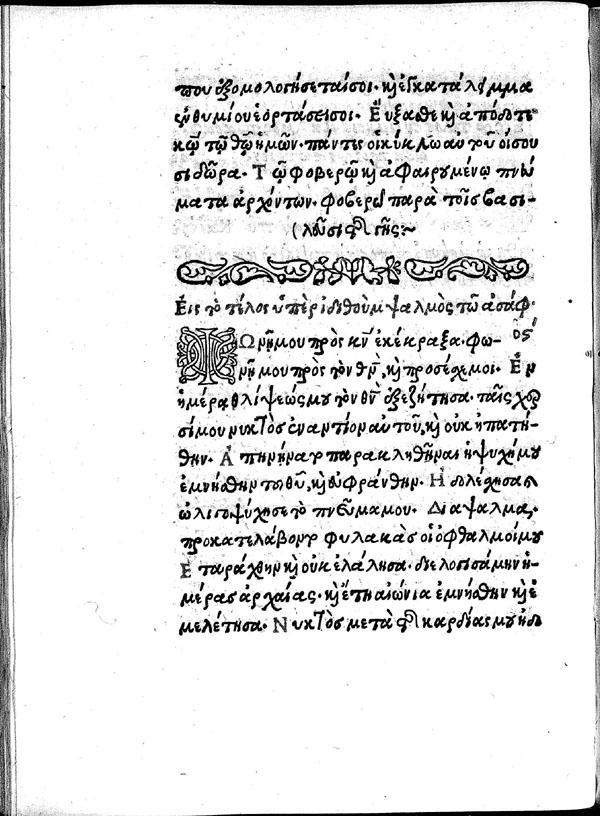 που ἐξομολογήσεταί σοι. καὶ ἐγκατάλειμμα
ἐνθυμίου ἑορτάσει σοι. Εὔξασθε καὶ ἀπόδοτε
κῷ τῷ θῷ ἡμῶν. πάντες οἱ κύκλῳ αὐτοῦ οἴσου
σι δῶρα. Τῷ φοβερῷ καὶ ἀφαιρουμένῳ πνεύ
ματα ἀρχόντων. φοβερῷ παρὰ τοῖς βασι-
λεῦσι τῆς γῆς:~
Εἰς τὸ τέλος ὑπὲρ ἰδιθούμ ψαλμὸς τῷ ἀσάφ.
ος
ΦΩνῇ μου πρὸς κν ἐκέκραξα. φω-
νῇ μου πρὸς τὸν θν, καὶ προσέσχε μοι. Ἐν
ἡμέρᾳ θλίψεώς μου τὸν θν ἐξεζήτησα. ταῖς χερ
σί μου νυκτὸς ἐναντίον αὐτοῦ, καὶ οὐκ ἠπατή-
θην. Ἀπηνήνατο παρακληθῆναι ἡ ψυχή μου
ἐμνήσθην τοῦ θυ, καὶ εὐφράνθην. Ἠδολέσχησα καὶ
ὠλιγοψύχησε τὸ πνεῦμα μου. Διάψαλμα.
προκατελάβοντο φυλακὰς οἱ ὀφθαλμοί μου
Ἐταράχθην καὶ οὐκ ἐλάλησα. διελογισάμην ἡ-
μέρας ἀρχαίας. καὶ ἔτη αἰώνια ἐμνήσθην καὶ ἐ
μελέτησα. Νυκτὸς μετὰ τῆς καρδίας μου ἠδο